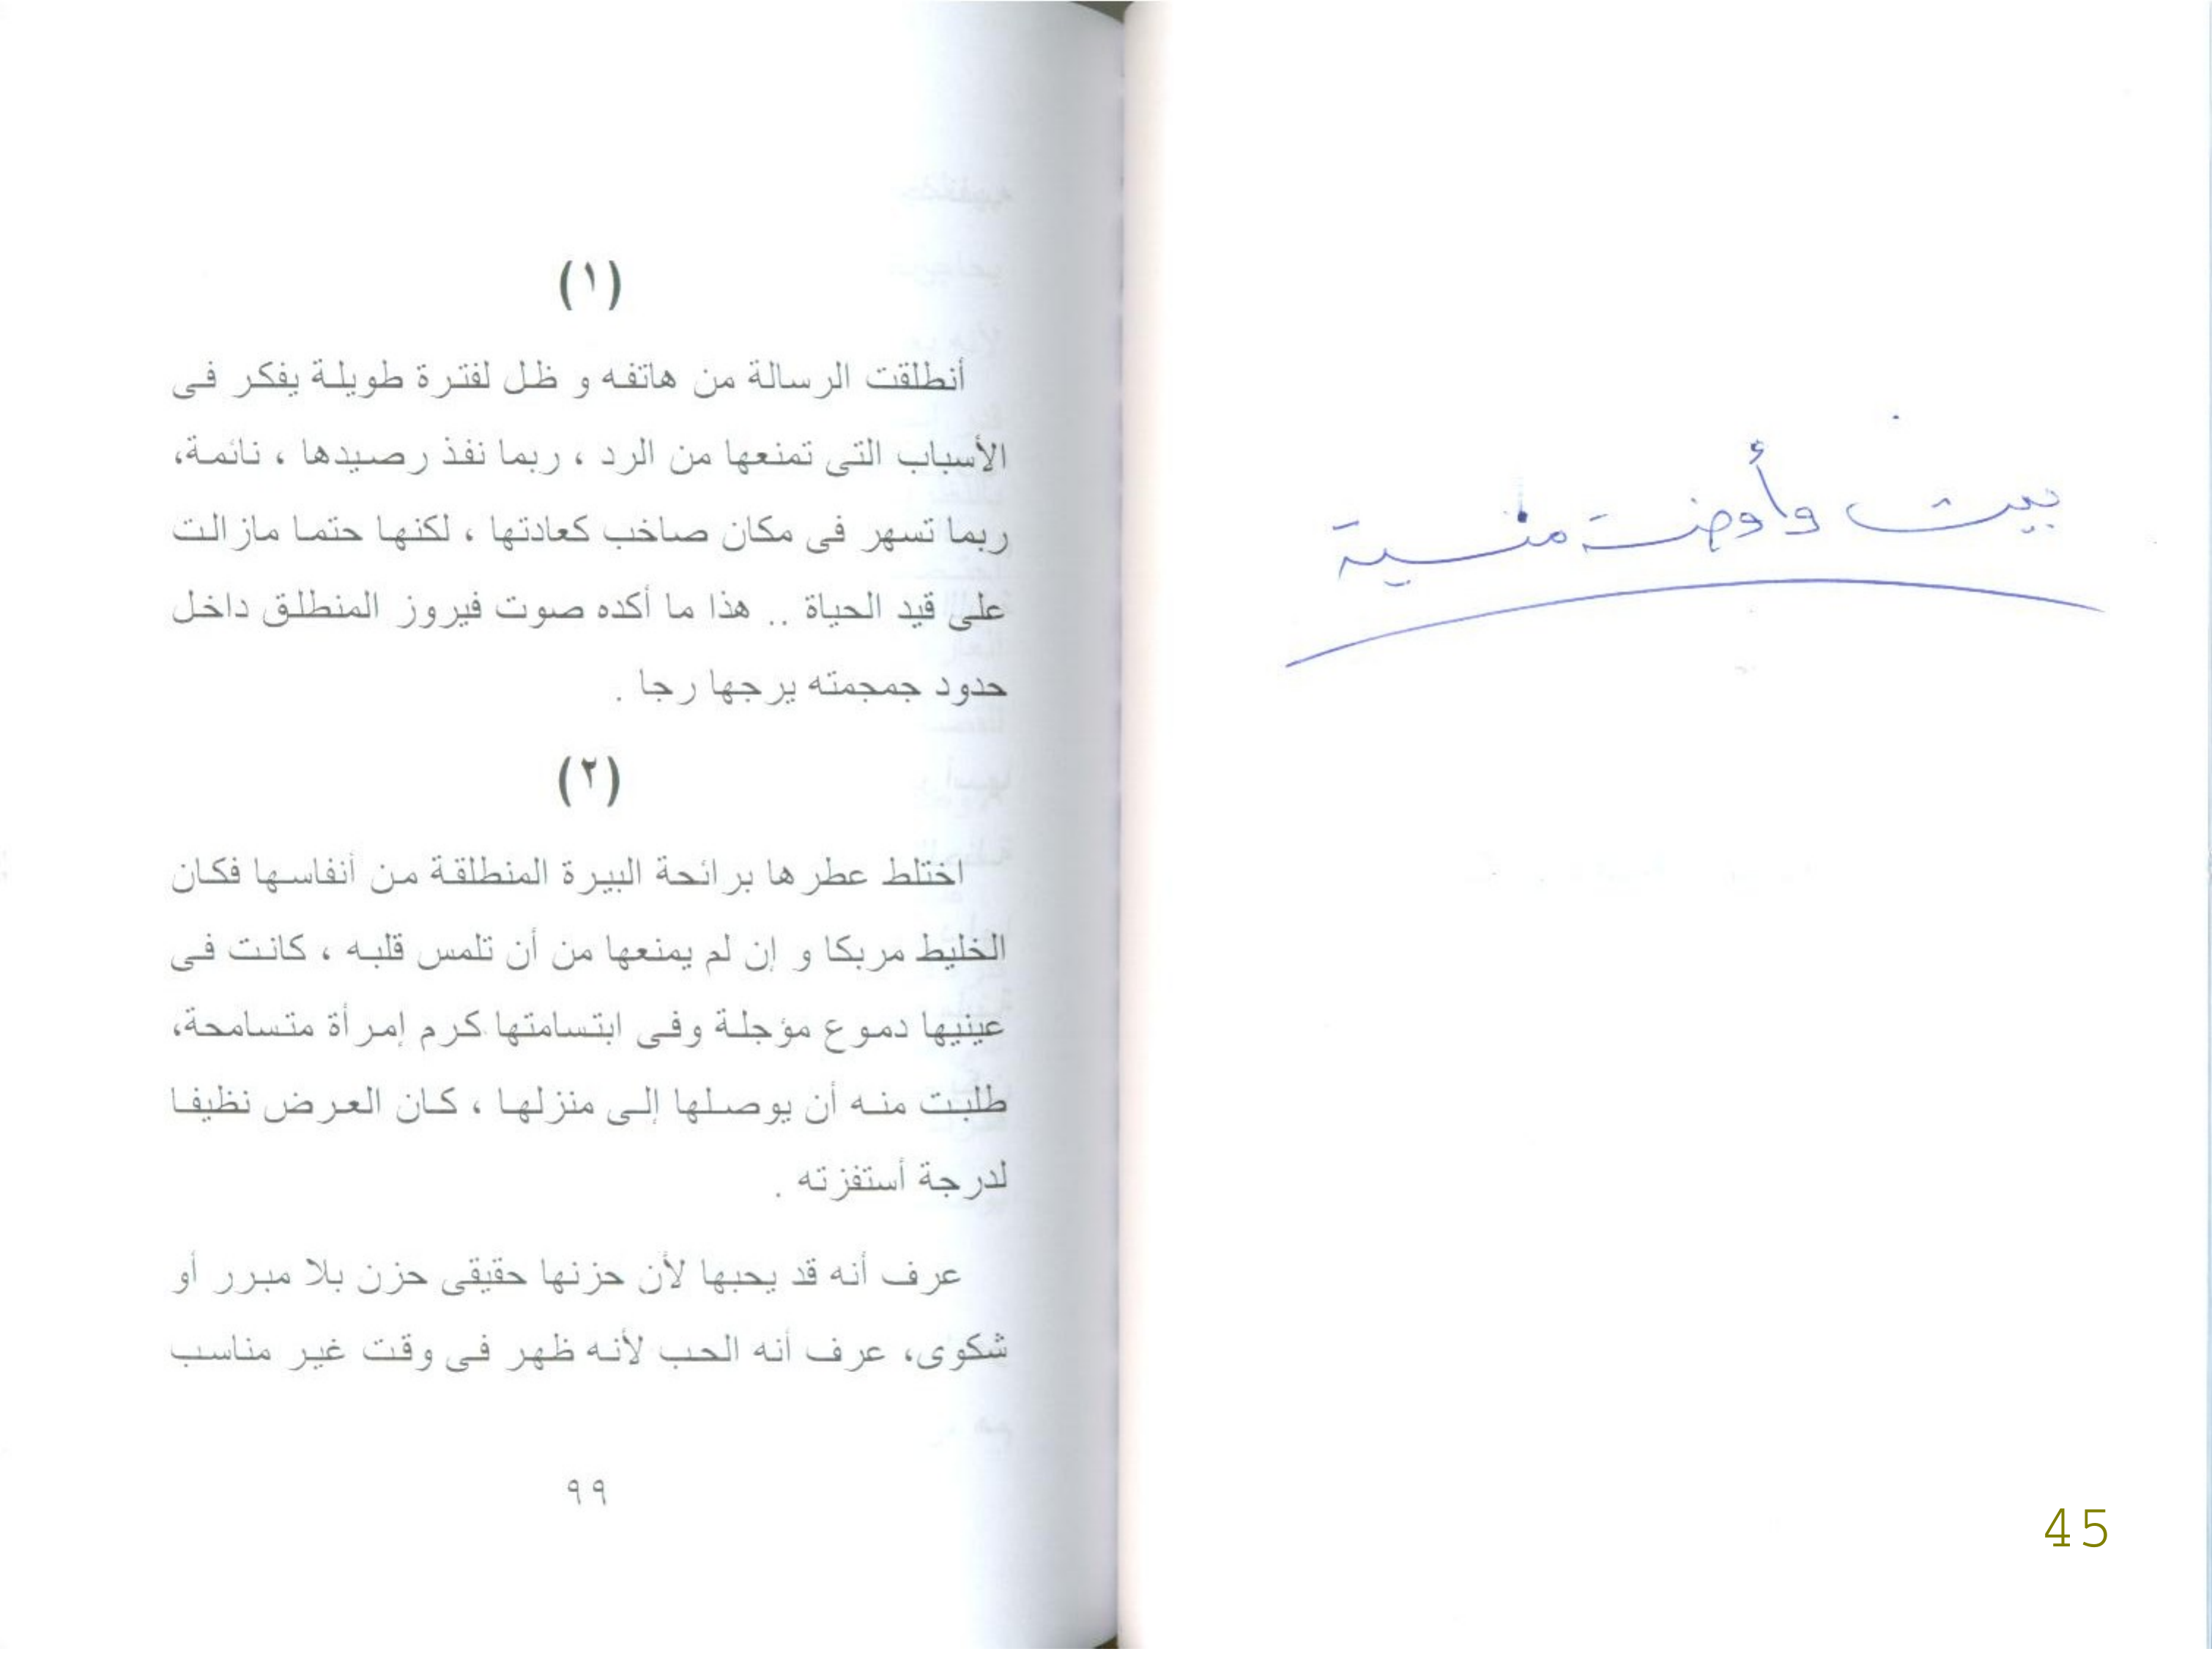 بيت وأوضة منسية
45
(١)
أنطلقت الرسالة من هاتفه و ظل لفترة طويلة يفكر فى
الأسباب التى تمنعها من الرد ، ربما نفذ رصيدها ، نائمة،
ربما تسهر فى مكان صاخب كعادتها ، لكنها حتما مازالت
على قيد الحياة .. هذا ما أكده صوت فيروز المنطلق داخل
حدود جمجمته يرجها رجا .
(٢)
اختلط عطرها برائحة البيرة المنطلقة من أنفاسها فكان
الخليط مربكا و إن لم يمنعها من أن تلمس قلبه ، كانت فى
عينيها دموع مؤجلة وفى ابتسامتها كرم إمرأة متسامحة،
طلبت منه أن يوصلها إلى منزلها ، كان العرض نظيفا
لدرجة أستفزته .
عرف أنه قد يحبها لأن حزنها حقيقى حزن بلا مبرر أو
شكوى، عرف أنه الحب لأنه ظهر فى وقت غير مناسب
٩٩